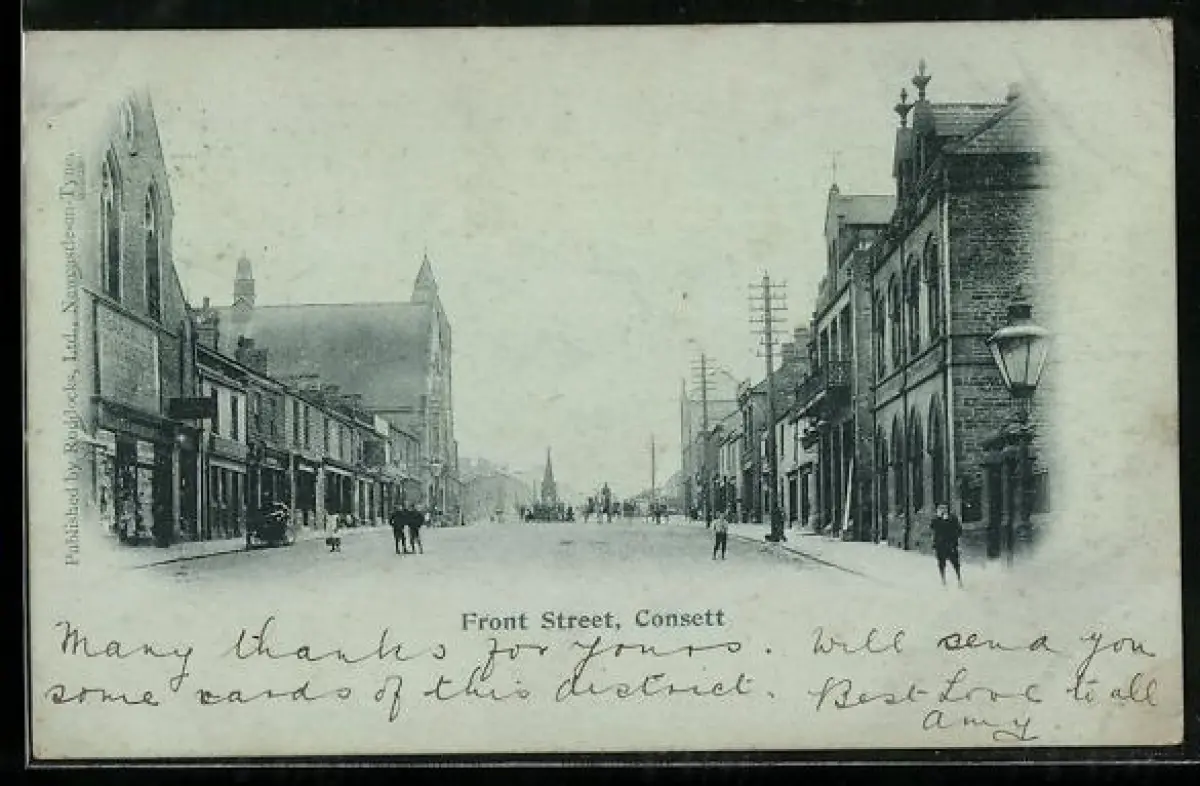 Published by Ruddocks, Ltd., Newcastle-on-Tyne.
Front Street, Consett
Many thanks for yours. Will send you
some cards of this district. Best Love to all
Amy.